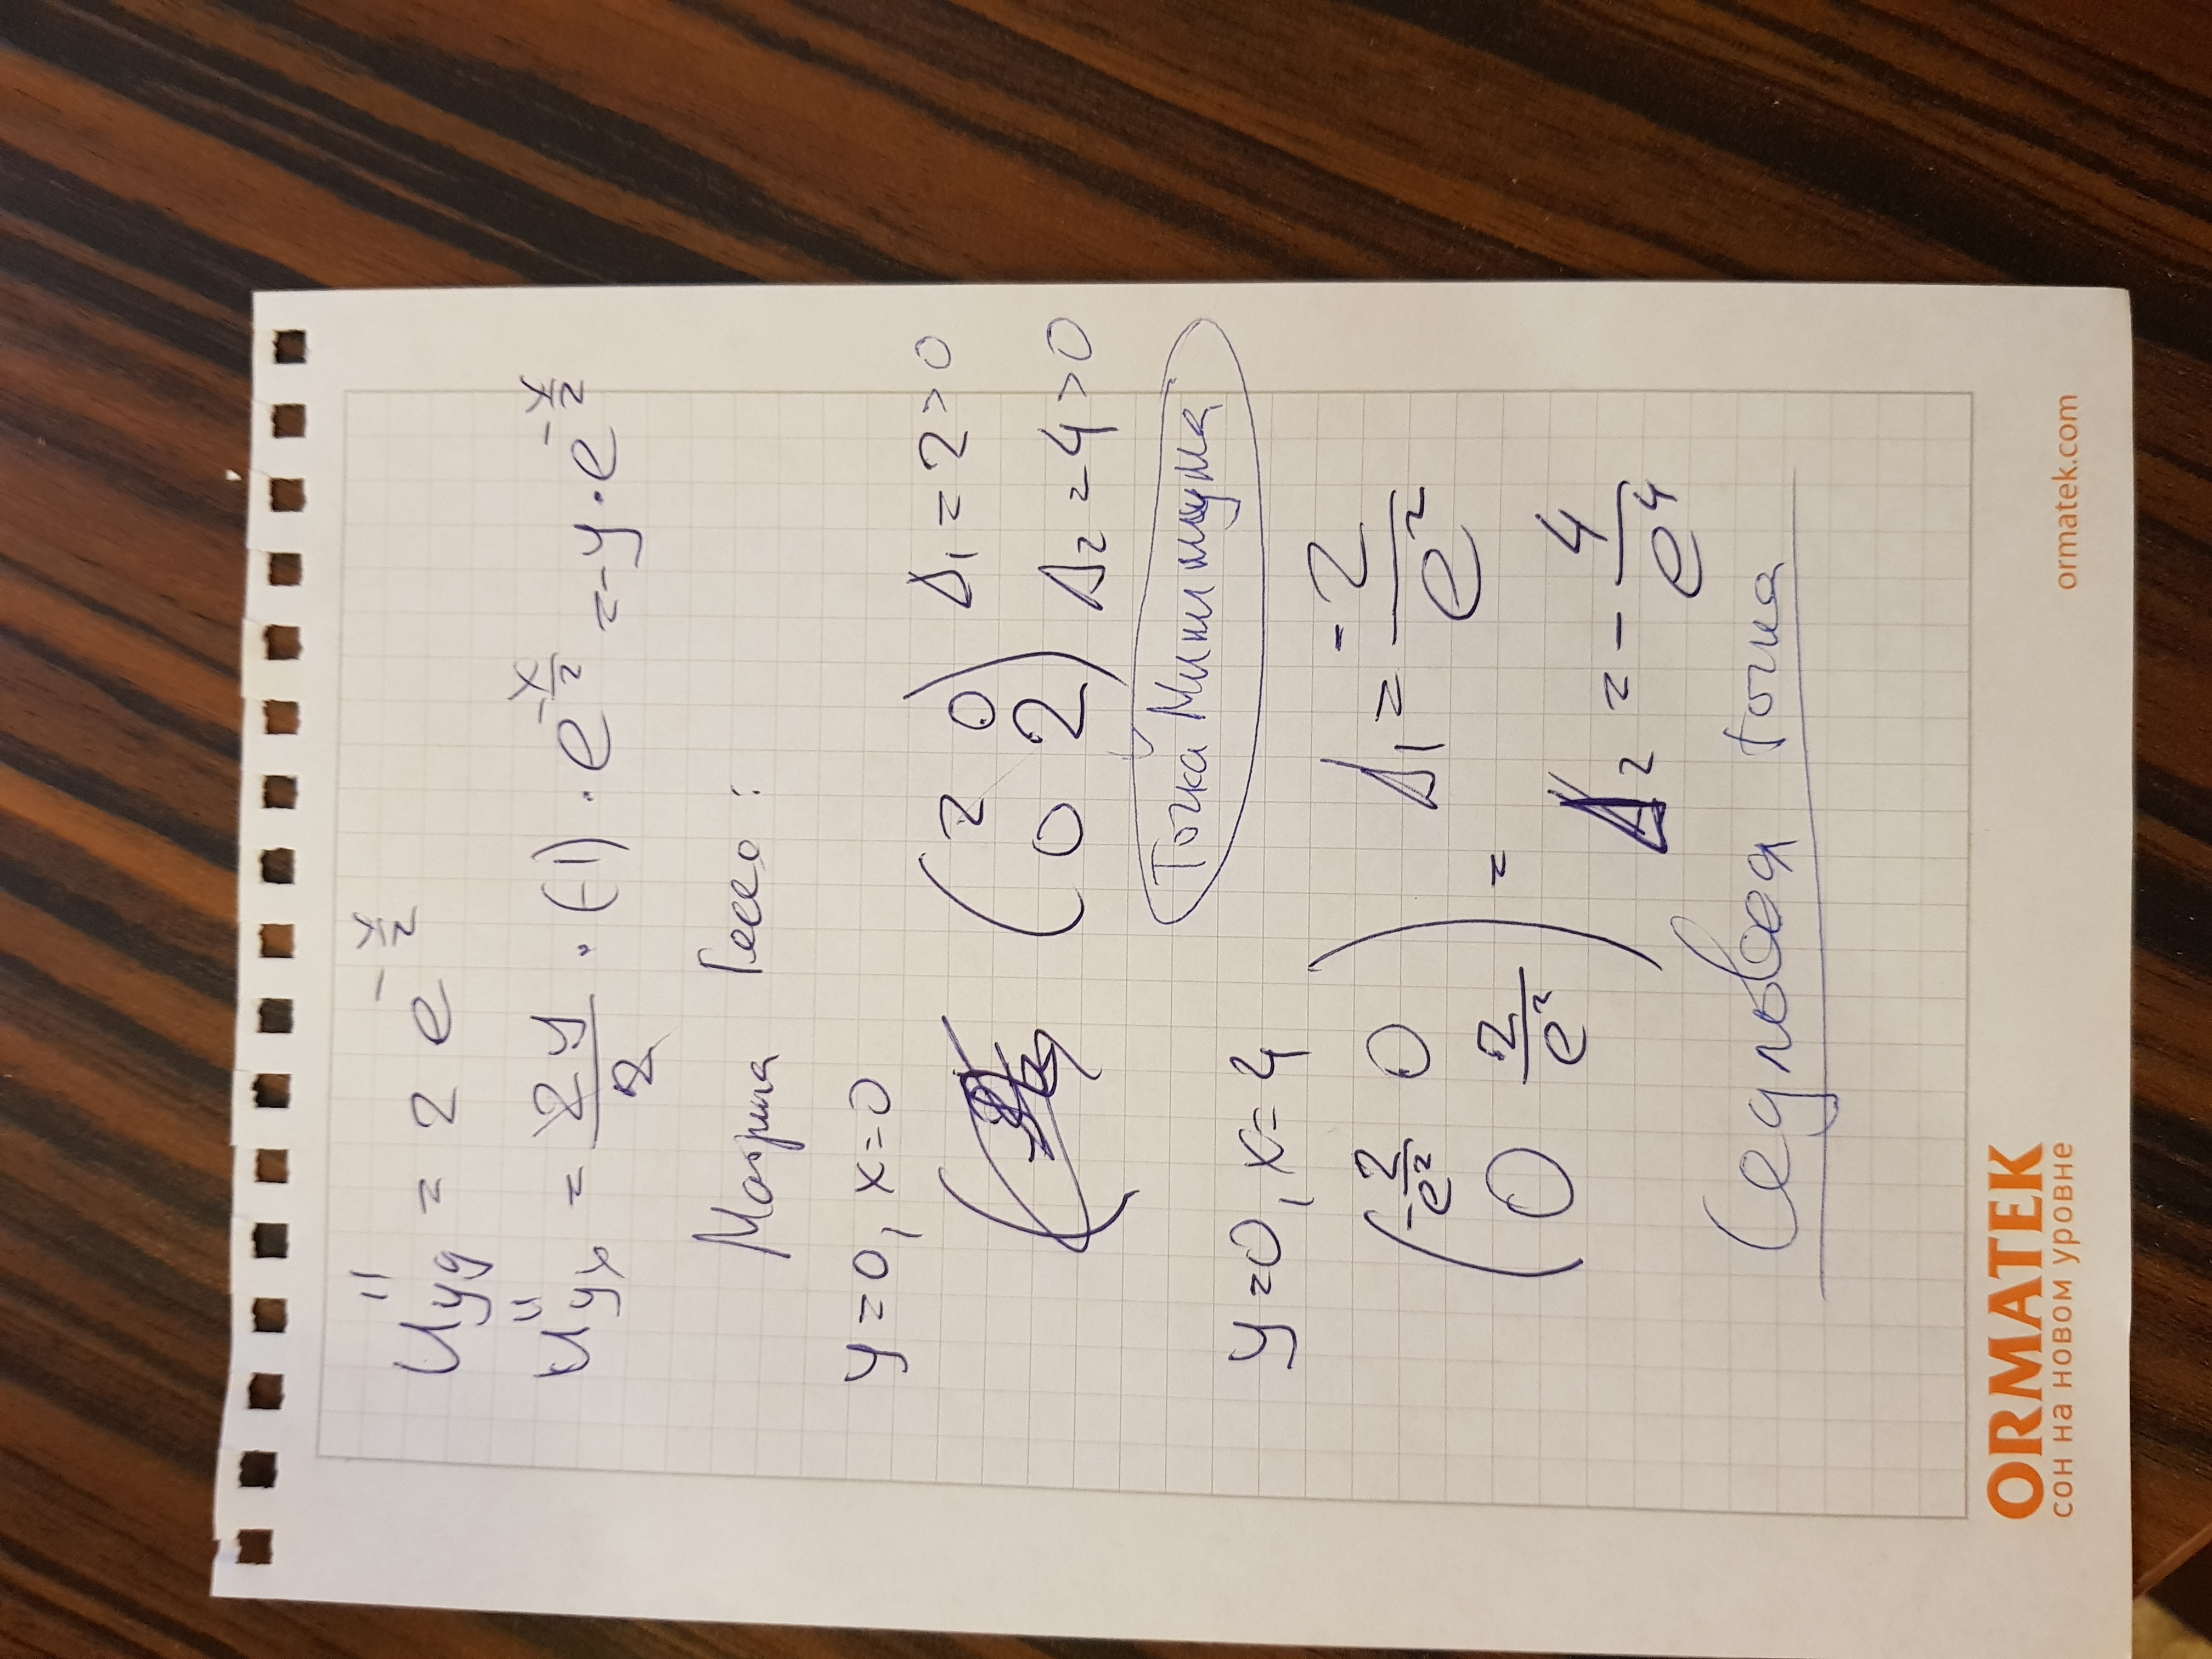 U''yy = 2 e^{-x/2}
U''yx = 2y/2 · (-1) · e^{-x/2} = -y · e^{-x/2}
Матрица Гессе:
y=0, x=0
(2 0; 0 2) Δ₁ = 2 > 0
Δ₂ = 4 > 0
Точка Минимума
y=0, x=4
(-2/e² 0; 0 2/e²) = Δ₁ = -2/e²
Δ₂ = -4/e⁴
Седловая точка
ORMATEK
сон на новом уровне
ormatek.com